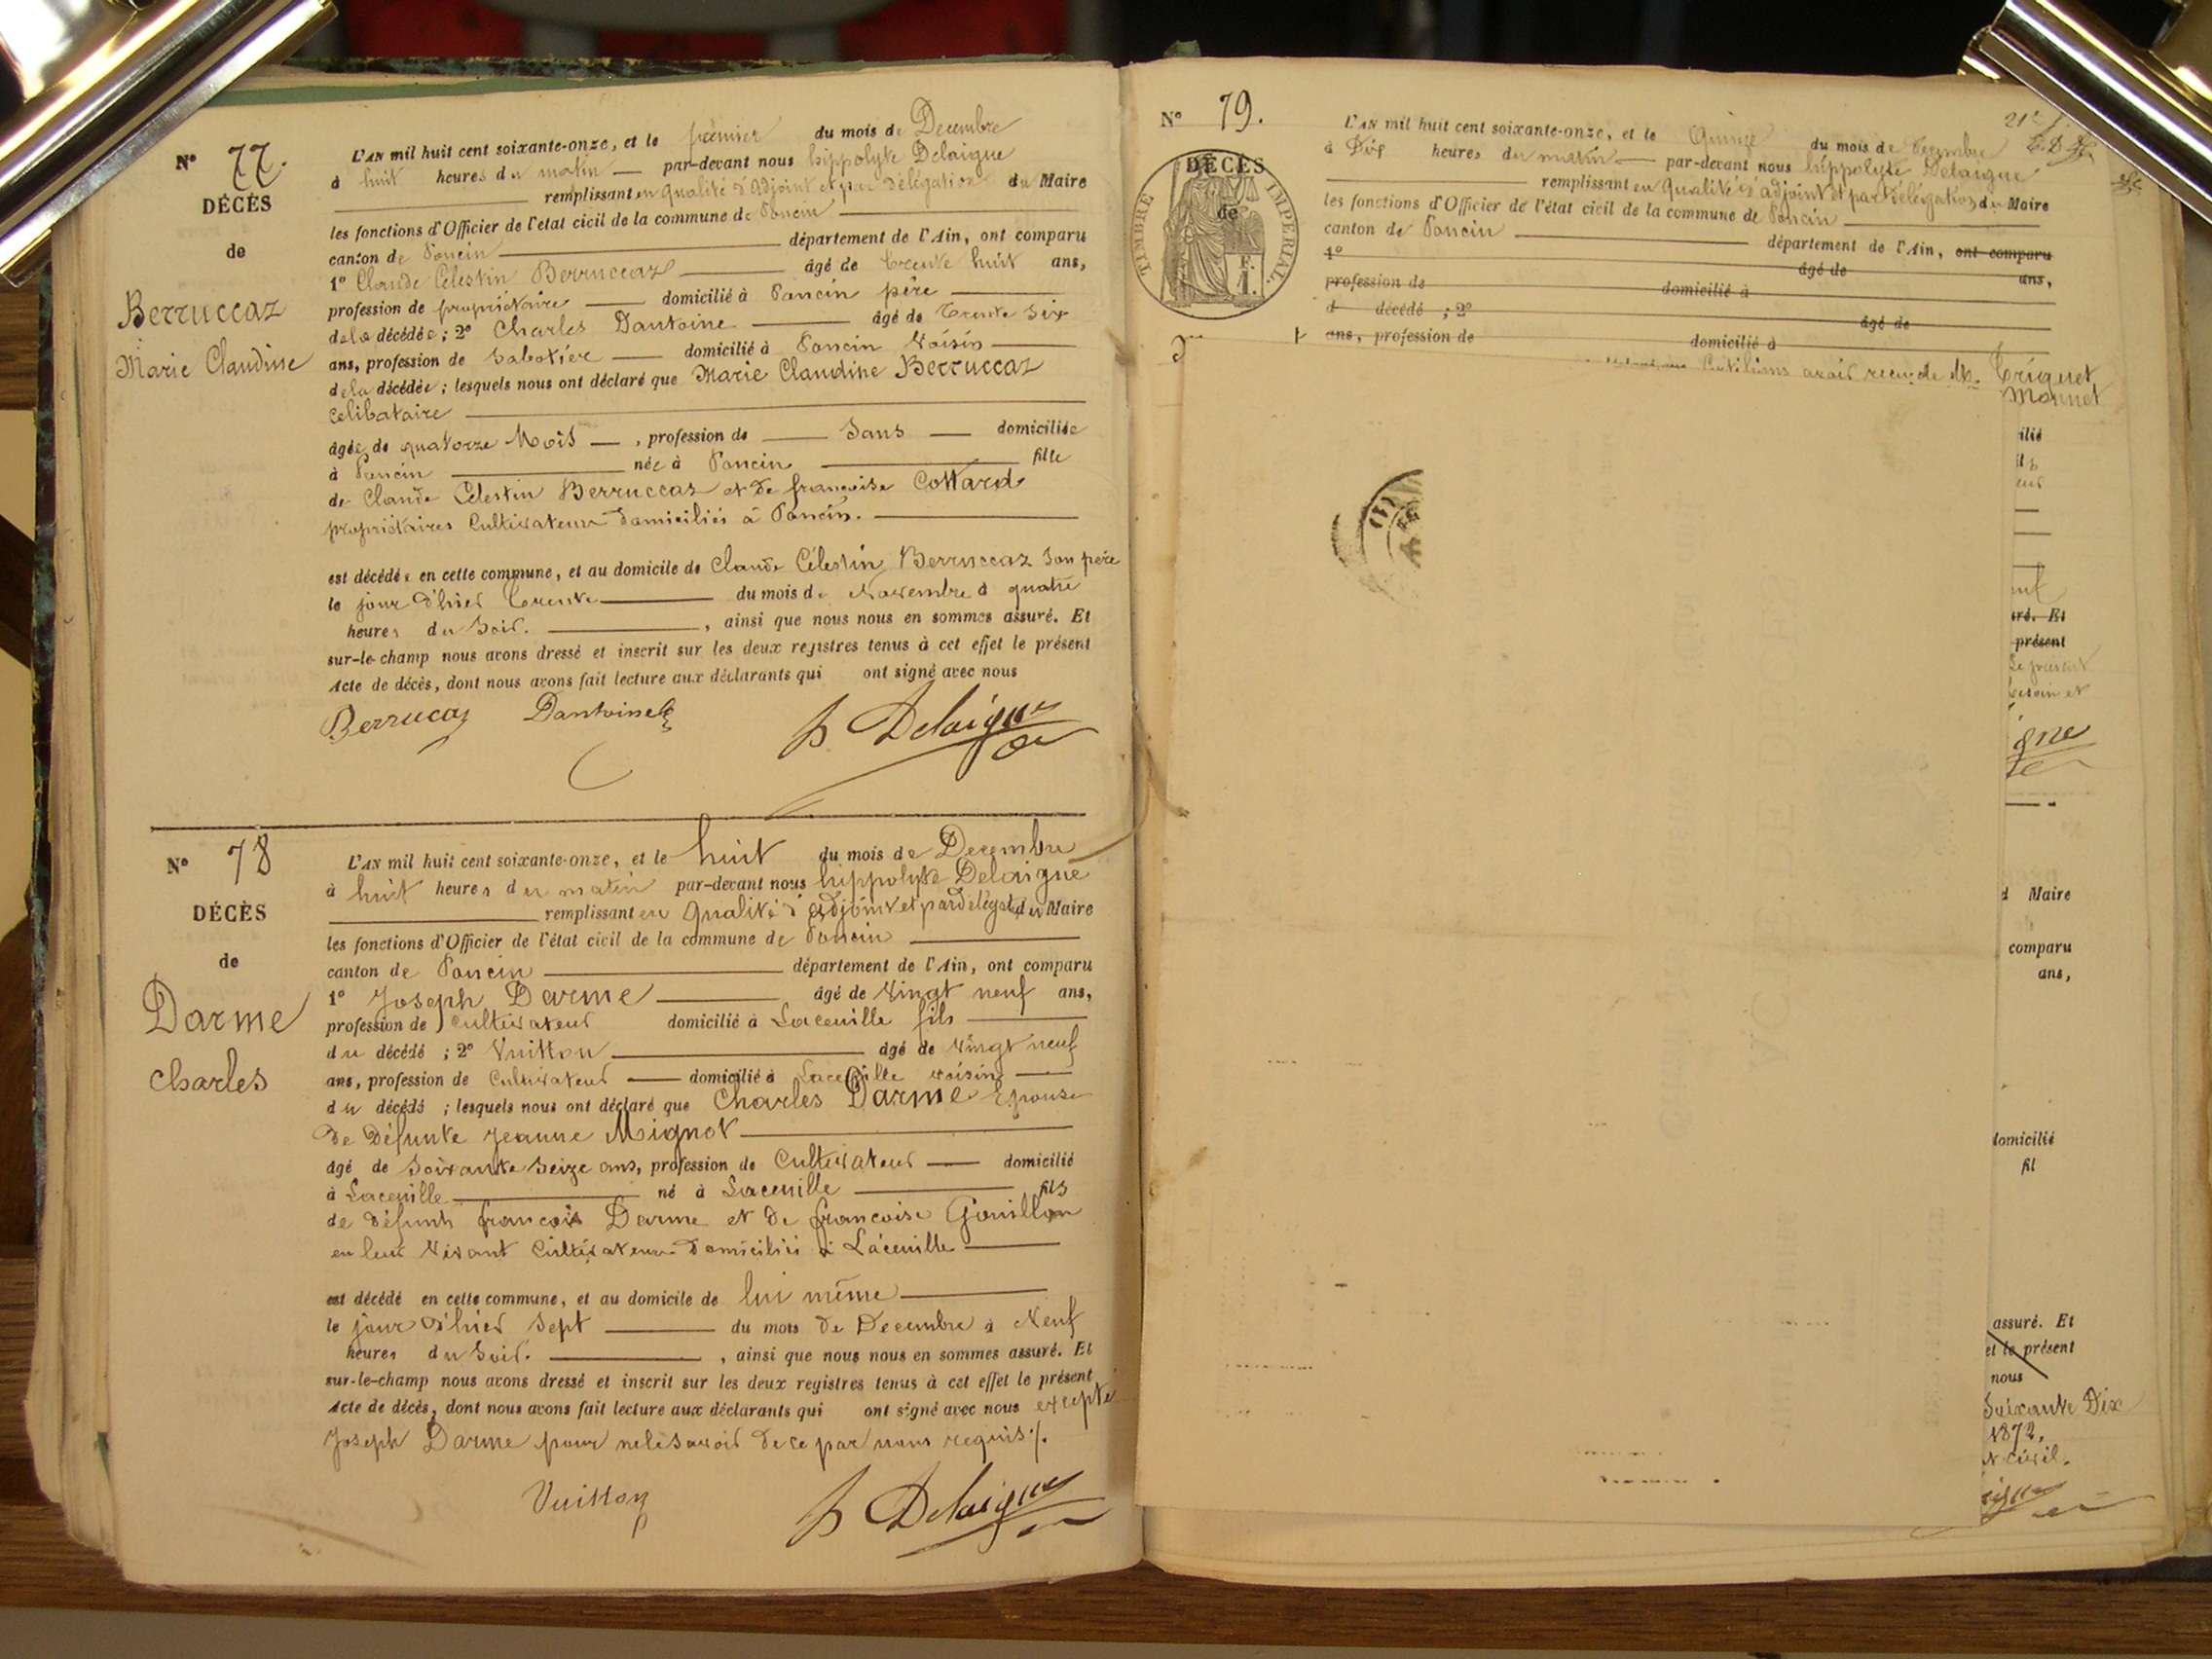 N° 77.
DÉCÈS
de
Berruccaz
Marie Claudine
L'AN mil huit cent soixante-onze, et le premier du mois de Decembre
à huit heures du matin — par-devant nous hippolyte Delaigue
remplissant en qualité d'Adjoint et par délégation du Maire
les fonctions d'Officier de l'état civil de la commune de Poncin
canton de Poncin département de l'Ain, ont comparu
1° Claude Célestin Berruccaz âgé de trente huit ans,
profession de propriétaire domicilié à Poncin père
de la décédée ; 2° Charles Dantoine âgé de trente six
ans, profession de Sabotier domicilié à Poncin Voisin
de la décédée ; lesquels nous ont déclaré que Marie Claudine Berruccaz
Celibataire
âgée de quatorze Mois — , profession de — Sans — domiciliée
à Poncin née à Poncin fille
de Claude Célestin Berruccaz et de francoise Cottard
propriétaires Cultivateurs domiciliés à Poncin.
est décédée en cette commune, et au domicile de Claude Célestin Berruccaz son père
le jour d'hier trente du mois de Novembre à quatre
heures du Soir. , ainsi que nous nous en sommes assuré. Et
sur-le-champ nous avons dressé et inscrit sur les deux registres tenus à cet effet le présent
Acte de décès, dont nous avons fait lecture aux déclarants qui ont signé avec nous
Berrucaz Dantoine h Delaigue
N° 78
DÉCÈS
de
Darme
Charles
L'AN mil huit cent soixante-onze, et le huit du mois de Decembre
à huit heures du matin par-devant nous hippolyte Delaigue
remplissant en qualité d'adjoint et par délégat du Maire
les fonctions d'Officier de l'état civil de la commune de Poncin
canton de Poncin département de l'Ain, ont comparu
1° Joseph Darme âgé de Vingt neuf ans,
profession de Cultivateur domicilié à Lacueille fils
du décédé ; 2° Vuitton âgé de Vingt neuf
ans, profession de Cultivateur — domicilié à Lacueille voisin
du décédé ; lesquels nous ont déclaré que Charles Darme Epouse
de défunte Jeanne Mignot
âgé de Soixante Seize ans, profession de Cultivateur — domicilié
à Lacueille né à Lacueille fils
de défunts francois Darme et de francoise Gouillon
en leur Vivant Cultivateurs domiciliés à Lacueille
est décédé en cette commune, et au domicile de lui même
le jour d'hier Sept du mois de Decembre à Neuf
heures du Soir. , ainsi que nous nous en sommes assuré. Et
sur-le-champ nous avons dressé et inscrit sur les deux registres tenus à cet effet le présent
Acte de décès, dont nous avons fait lecture aux déclarants qui ont signé avec nous excepté
Joseph Darme pour ne le savoir de ce par nous requis ./.
Vuitton h Delaigue
N° 79.
DÉCÈS
de
TIMBRE IMPÉRIAL
L'AN mil huit cent soixante-onze, et le Quinze du mois de Decembre
à Dix heures du matin — par-devant nous hippolyte Delaigue
remplissant en qualité d'adjoint et par délégation du Maire
les fonctions d'Officier de l'état civil de la commune de Poncin
canton de Poncin département de l'Ain, ont comparu
1° âgé de ans,
profession de domicilié à
d décédé ; 2° âgé de
ans, profession de domicilié à
avait reçu de M. Triquet
Monnet
ilié
présent
gne
Maire
comparu
ans,
domicilié
fil
assuré. Et
et le présent
nous
Soixante Dix
1872.
Civil.